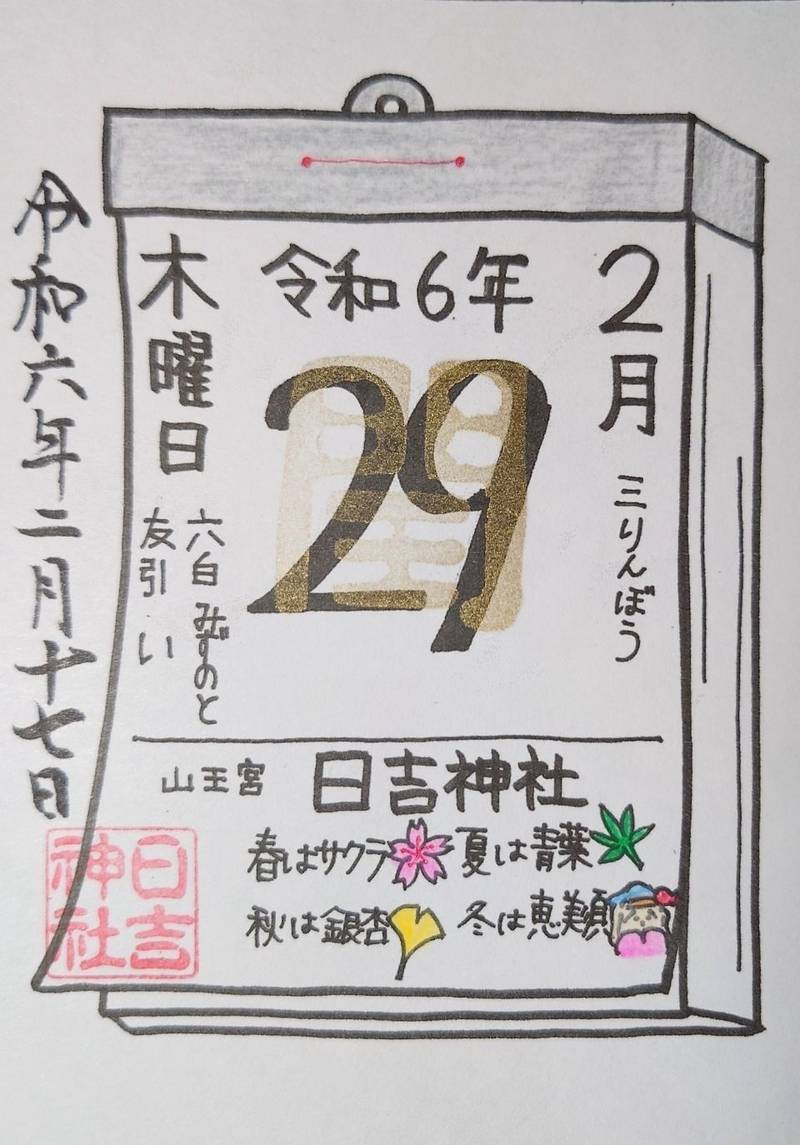 2月
三りんぼう
令和6年
29
閏
木曜日
六白 みずのと
友引 い
山王宮 日吉神社
春はサクラ 夏は青葉
秋は銀杏 冬は恵美須
令和六年二月十七日
日吉神社